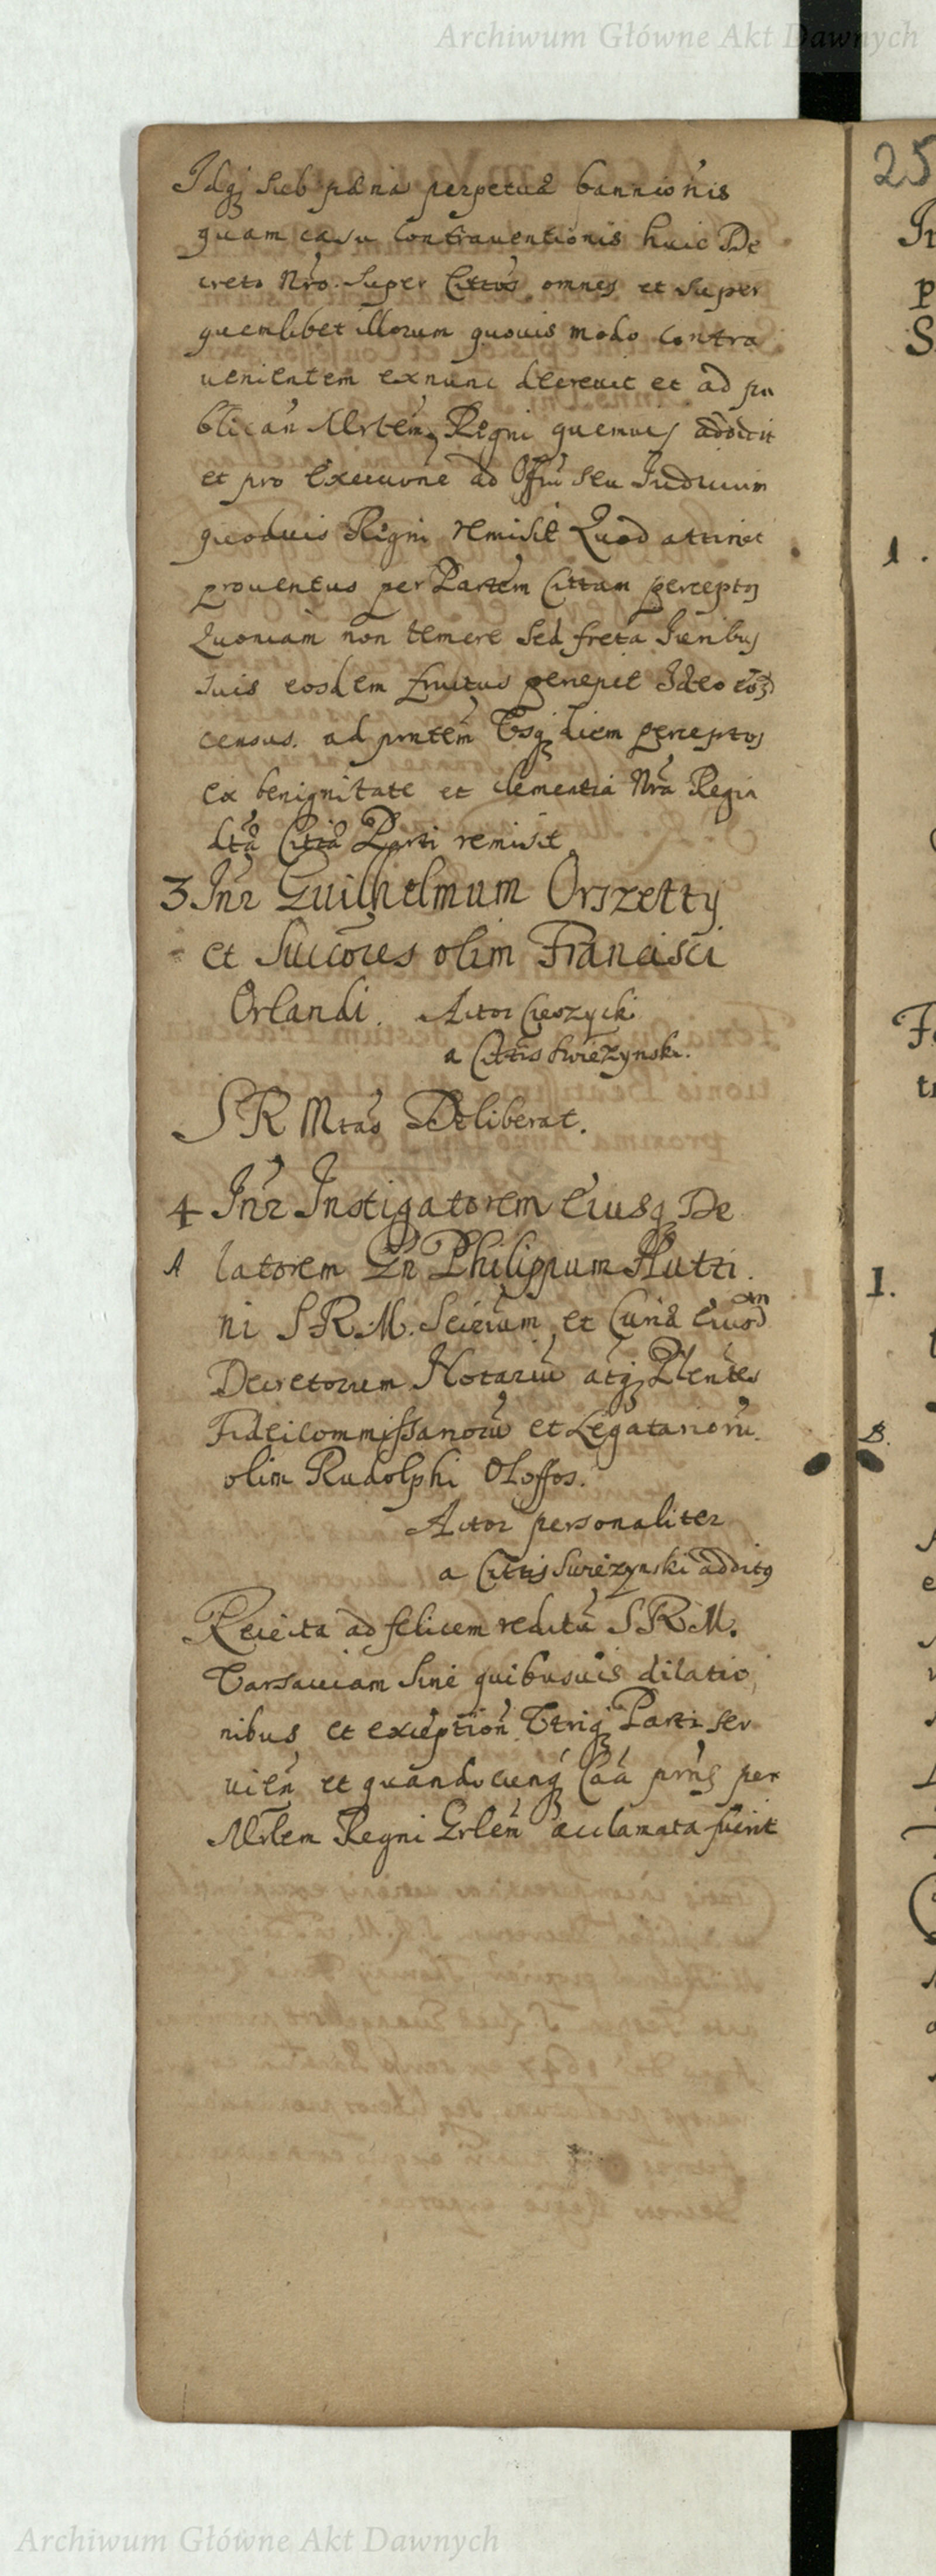 Archiwum Główne Akt Dawnych
Idqz sub pæna perpetuæ bannionis
quam casu contrauentionis huic De
creto Nro. super Cittos omnes et super
quemlibet illorum quouis modo contra
uenientem exnunc decreuit et ad pu
blican̄ Mrlem Regni quemuis addicit
et pro Executione ad Offiū seu Iudicium
quoduis Regni remisit Quod attinet
prouentus per Partem Cittam perceptos
Quoniam non temere sed freta Iuribus
suis eosdem fructus percepit Ideo
census. ad pntem Vsqz diem perceptos
ex benignitate et clementia Nra Regia
dtæ Cittæ Parti remisit
3 Inr Guilhelmum Orszetty
et Succores olim Francisci
Orlandi. Actor Cieszycki
a Cittis Swiezynski.
S R Mtas Deliberat.
4 Inr Instigatorem Eiusqz De
A latorem Gn Philippum Hutti
ni S R M. Secrium et Curiæ Eiusdem
Decretorum Notariū atqz
Fideicommissarioru et Legatarioru.
olim Rudolphi Oloffos.
Actor personaliter
a Cittis Swiezynski additus
Reiecta ad felicem reditū S R M.
Varsauiam sine quibusuis dilatio
nibus et exception̄ Vtriqz Parti ser
uien̄ et quandocunqz Caa pns per
Mrlem Regni Grlem acclamata fuerit
25
1.
I.
B.
Archiwum Główne Akt Dawnych